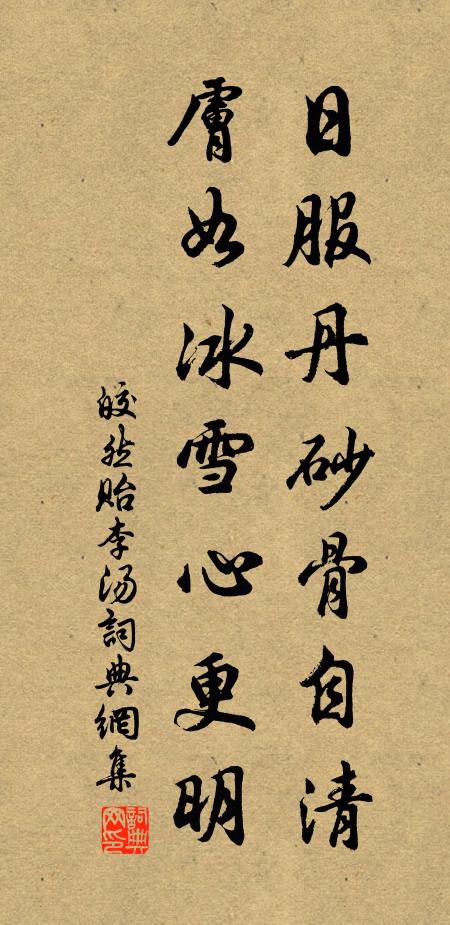 日服丹砂骨自清
膚如冰雪心更明
皎然貽李汤詞典網集
詞典网印